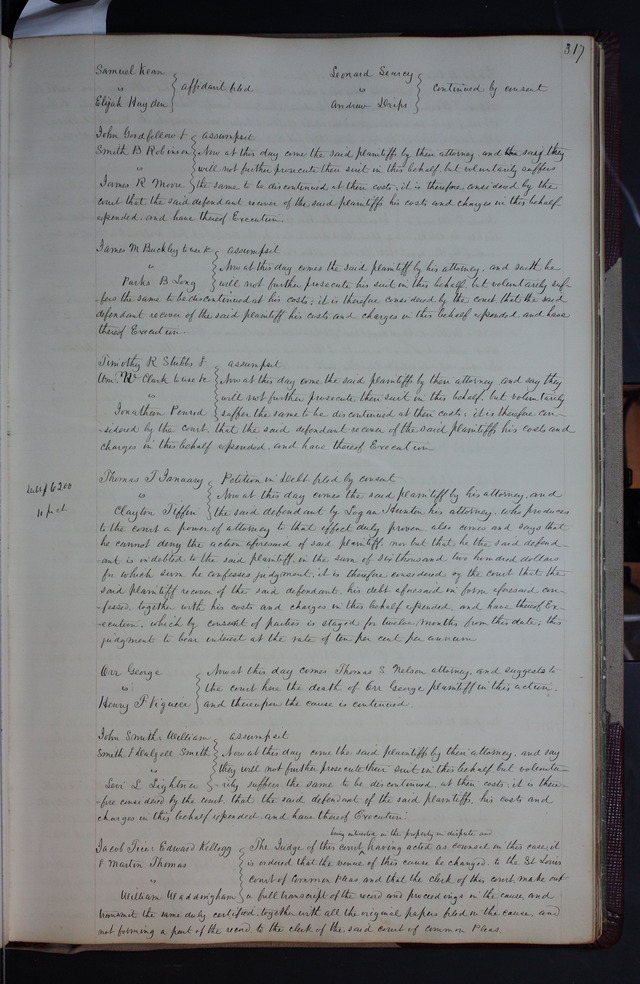 317
Samuel Kean
vs
Elijah Hayden
affidavit filed
Leonard Searcy
vs
Andrew Drips
continued by consent
John Goodfellow & assumpsit
Smith B Robinson Now at this day come the said plaintiffs by their attorney, and say they
vs will not further prosecute their suit in this behalf, but voluntarily suffers
James R Moore the same to be discontinued at their costs, it is therefore considered by the
court that the said defendant recover of the said plaintiffs his costs and charges in this behalf
expended, and have thereof Execution.
James M Buckley to use &c assumpsit
vs Now at this day comes the said plaintiff by his attorney, and saith he
Parks B Long will not further prosecute his suit in this behalf, but voluntarily suf-
-fers the same to be discontinued at his costs; it is therefore considered by the court that the said
defendant recover of the said plaintiff his costs and charges in this behalf expended, and have
thereof Execution.
Timothy R Stubbs & assumpsit
Wm. W Clark to use &c Now at this day come the said plaintiffs by their attorney and say they
vs will not further prosecute their suit in this behalf, but voluntarily
Jonathan Penrod suffer the same to be discontinued at their costs; it is therefore con-
-sidered by the court, that the said defendant recover of the said plaintiffs his costs and
charges in this behalf expended, and have thereof Execution
Thomas T January Petition in Debt filed by consent
vs Now at this day comes the said plaintiff by his attorney, and
Clayton Tiffin the said defendant by Logan Hunton his attorney, who produces
to the court a power of attorney to that effect duly proven, also comes and says that
he cannot deny the action aforesaid of said plaintiff, nor but that he the said defend-
-ant is indebted to the said plaintiff, in the sum of six thousand two hundred dollars
for which sum he confesses judgment, it is therefore considered by the court that the
said plaintiff recover of the said defendant, his debt aforesaid in form aforesaid con-
-fessed, together with his costs and charges in this behalf expended, and have thereof Ex-
-ecution, which by consent of parties is stayed for twelve months from this date; this
judgment to bear interest at the rate of ten per cent per annum
6200
10 pr ct
Orr George Now at this day comes Thomas S Nelson attorney, and suggests to
vs the court here the death of Orr George plaintiff in this action,
Henry F and thereupon the cause is continued
John Smith, William assumpsit
Smith & Dalzell Smith Now at this day come the said plaintiffs by their attorney, and say
vs they will not further prosecute their suit in this behalf, but volunta-
Levi L Lightner -rily suffers the same to be discontinued, at their costs; it is there-
-fore considered by the court, that the said defendant of the said plaintiffs, his costs and
charges in this behalf expended, and have thereof Execution.
being interested in the property in dispute and
Jacob Edward Kellogg The Judge of this court, having acted as counsel in this case, it
& Martin Thomas is ordered that the venue of this cause be changed, to the St Louis
vs court of Common Pleas, and that the clerk of this court, make out
William Waddingham a full transcript of the record and proceedings in the cause, and
transmit the same duly certified, together with all the original papers filed in the cause, and
not forming a part of the record to the clerk of the said court of common Pleas.